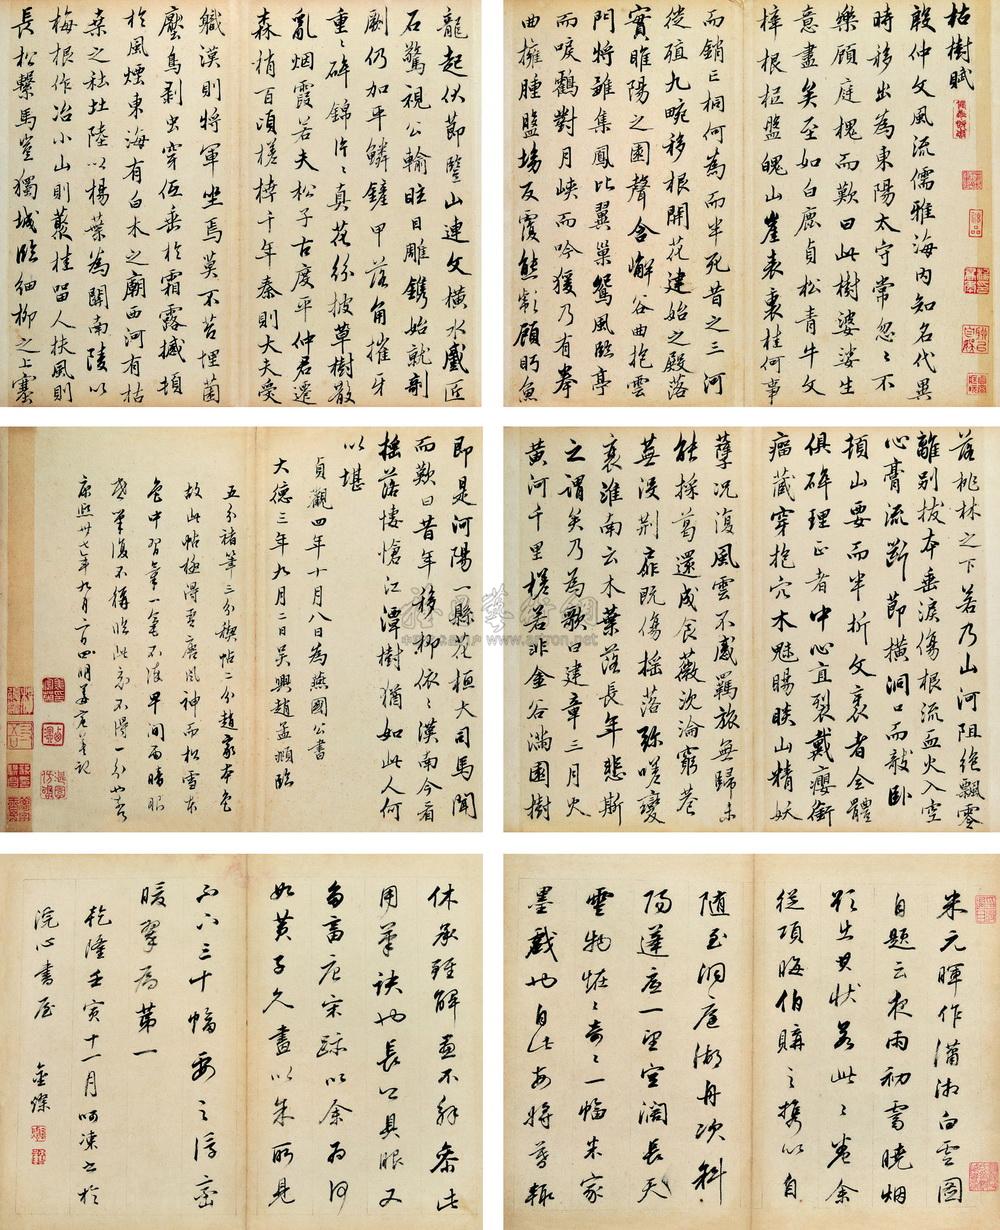 枯樹賦
殷仲文風流儒雅海內知名代異
時移出為東陽太守常忽〻不
樂顧庭槐而歎曰此樹婆娑生
意盡矣至如白鹿貞松青牛文
梓根柢盤魄山崖表裏桂何事
而銷亡桐何為而半死昔之三河
徙殖九畹移根開花建始之殿落
實睢陽之園聲含嶰谷曲抱雲
門將雛集鳳比翼巢鴛風臨亭
而唳鶴對月峽而吟猨乃有拳
曲擁腫盤坳反覆熊彪顧盻魚
龍起伏節豎山連文橫水蹙匠
石驚視公輸眩目雕鐫始就剞
劂仍加平鱗鏟甲落角摧牙
重〻碎錦片〻真花紛披草樹散
亂烟霞若夫松子古度平仲君遷
森梢百頃槎枿千年秦則大夫受
職漢則將軍坐焉莫不苔埋菌
壓鳥剝虫穿低垂於霜露撼頓
於風煙東海有白木之廟西河有枯
桑之社北陸以楊葉為關南陵以
梅根作冶小山則叢桂留人扶風則
長松繫馬豈獨城臨細柳之上塞
落桃林之下若乃山河阻絕飄零
離別拔本垂淚傷根流血火入空
心膏流斷節橫洞口而敧臥
頓山要而半折文裏者合體
俱碎理正者中心直裂戴癭銜
瘤藏穿抱穴木魅睗睒山精妖
孽況復風雲不感羈旅無歸未
能採葛還成食薇沈淪窮巷
蕪沒荊扉既傷搖落彌嗟變
衰淮南云木葉落長年悲斯
之謂矣乃為歌曰建章三月火
黃河千里槎若非金谷滿園樹
即是河陽一縣花桓大司馬聞
而歎曰昔年移柳依〻漢南今看
搖落悽愴江潭樹猶如此人何
以堪
貞觀四年十月八日為燕國公書
大德三年九月二日吳興趙孟頫臨
五分褚筆三分禊帖二分趙家本色
故此帖極得晉唐風神而松雪本
色中習氣一毫不染早間雨暗眼
昏筆復不稱臨此意不得一分也
康熙卅七年九月四明姜宸英記
米元暉作瀟湘白雲圖
自題云夜雨初霽曉烟
欲出其狀若此此卷余
從項晦伯購之攜以自
隨至洞庭湖舟次斜
陽蓬底一望空闊長天
雲物怪〻奇〻一幅米家
墨戲也自此每將暮輒
休承雖解畫不解參此
用筆訣也長公具眼又
多畜唐宋跡以余為何
如黃子久畫以朱所見
不下三十幅要之浮嵐
暖翠為第一
乾隆壬寅十一月呵凍書於
浣心書屋